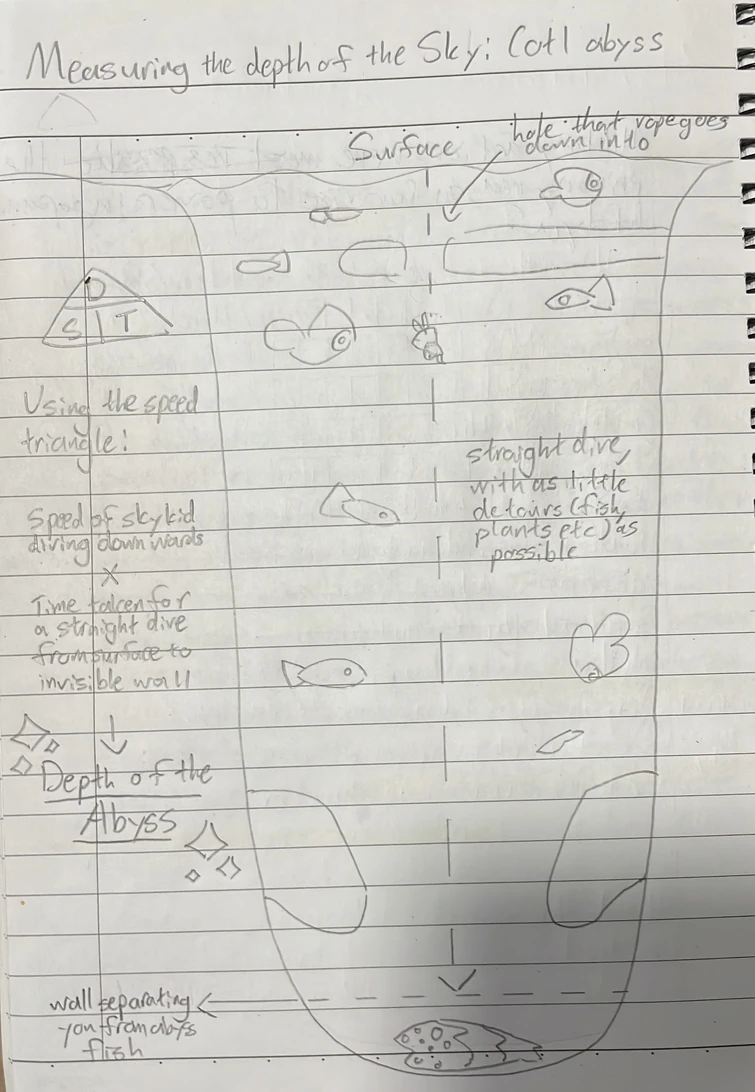 Measuring the depth of the Sky: Cotl abyss
Surface
hole that rope goes
down into
D
S T
Using the speed
triangle:
Speed of skykid
diving downwards
X
Time taken for
a straight dive
from surface to
invisible wall
Depth of the
Abyss
straight dive,
with as little
detours (fish,
plants etc) as
possible
wall separating
you from abyss
fish